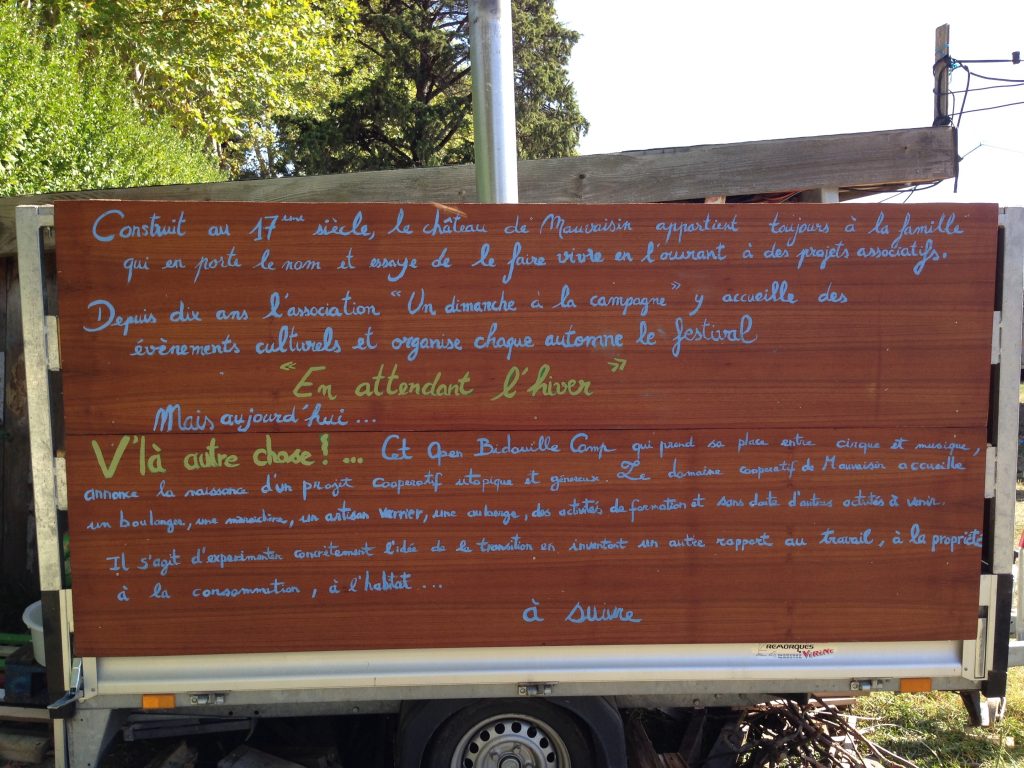 Construit au 17ème siècle, le château de Mauvaisin appartient toujours à la famille
qui en porte le nom et essaye de le faire vivre en l'ouvrant à des projets associatifs.
Depuis dix ans l'association "Un dimanche à la campagne" y accueille des
évènements culturels et organise chaque automne le festival
"En attendant l'hiver"
Mais aujourd'hui ...
V'là autre chose! ... Cet Open Bidouille Camp qui prend sa place entre cirque et musique,
annonce la naissance d'un projet cooperatif utopique et généreux. Le domaine cooperatif de Mauvaisin accueille
un boulanger, une maraichère, un artisan verrier, une auberge, des activités de formation et sans doute d'autres activités à venir.
Il s'agit d'experimenter concrètement l'idée de la transition en inventant un autre rapport au travail, à la propriété
à la consommation, à l'habitat ...
à suivre
REMORQUES
VERONE